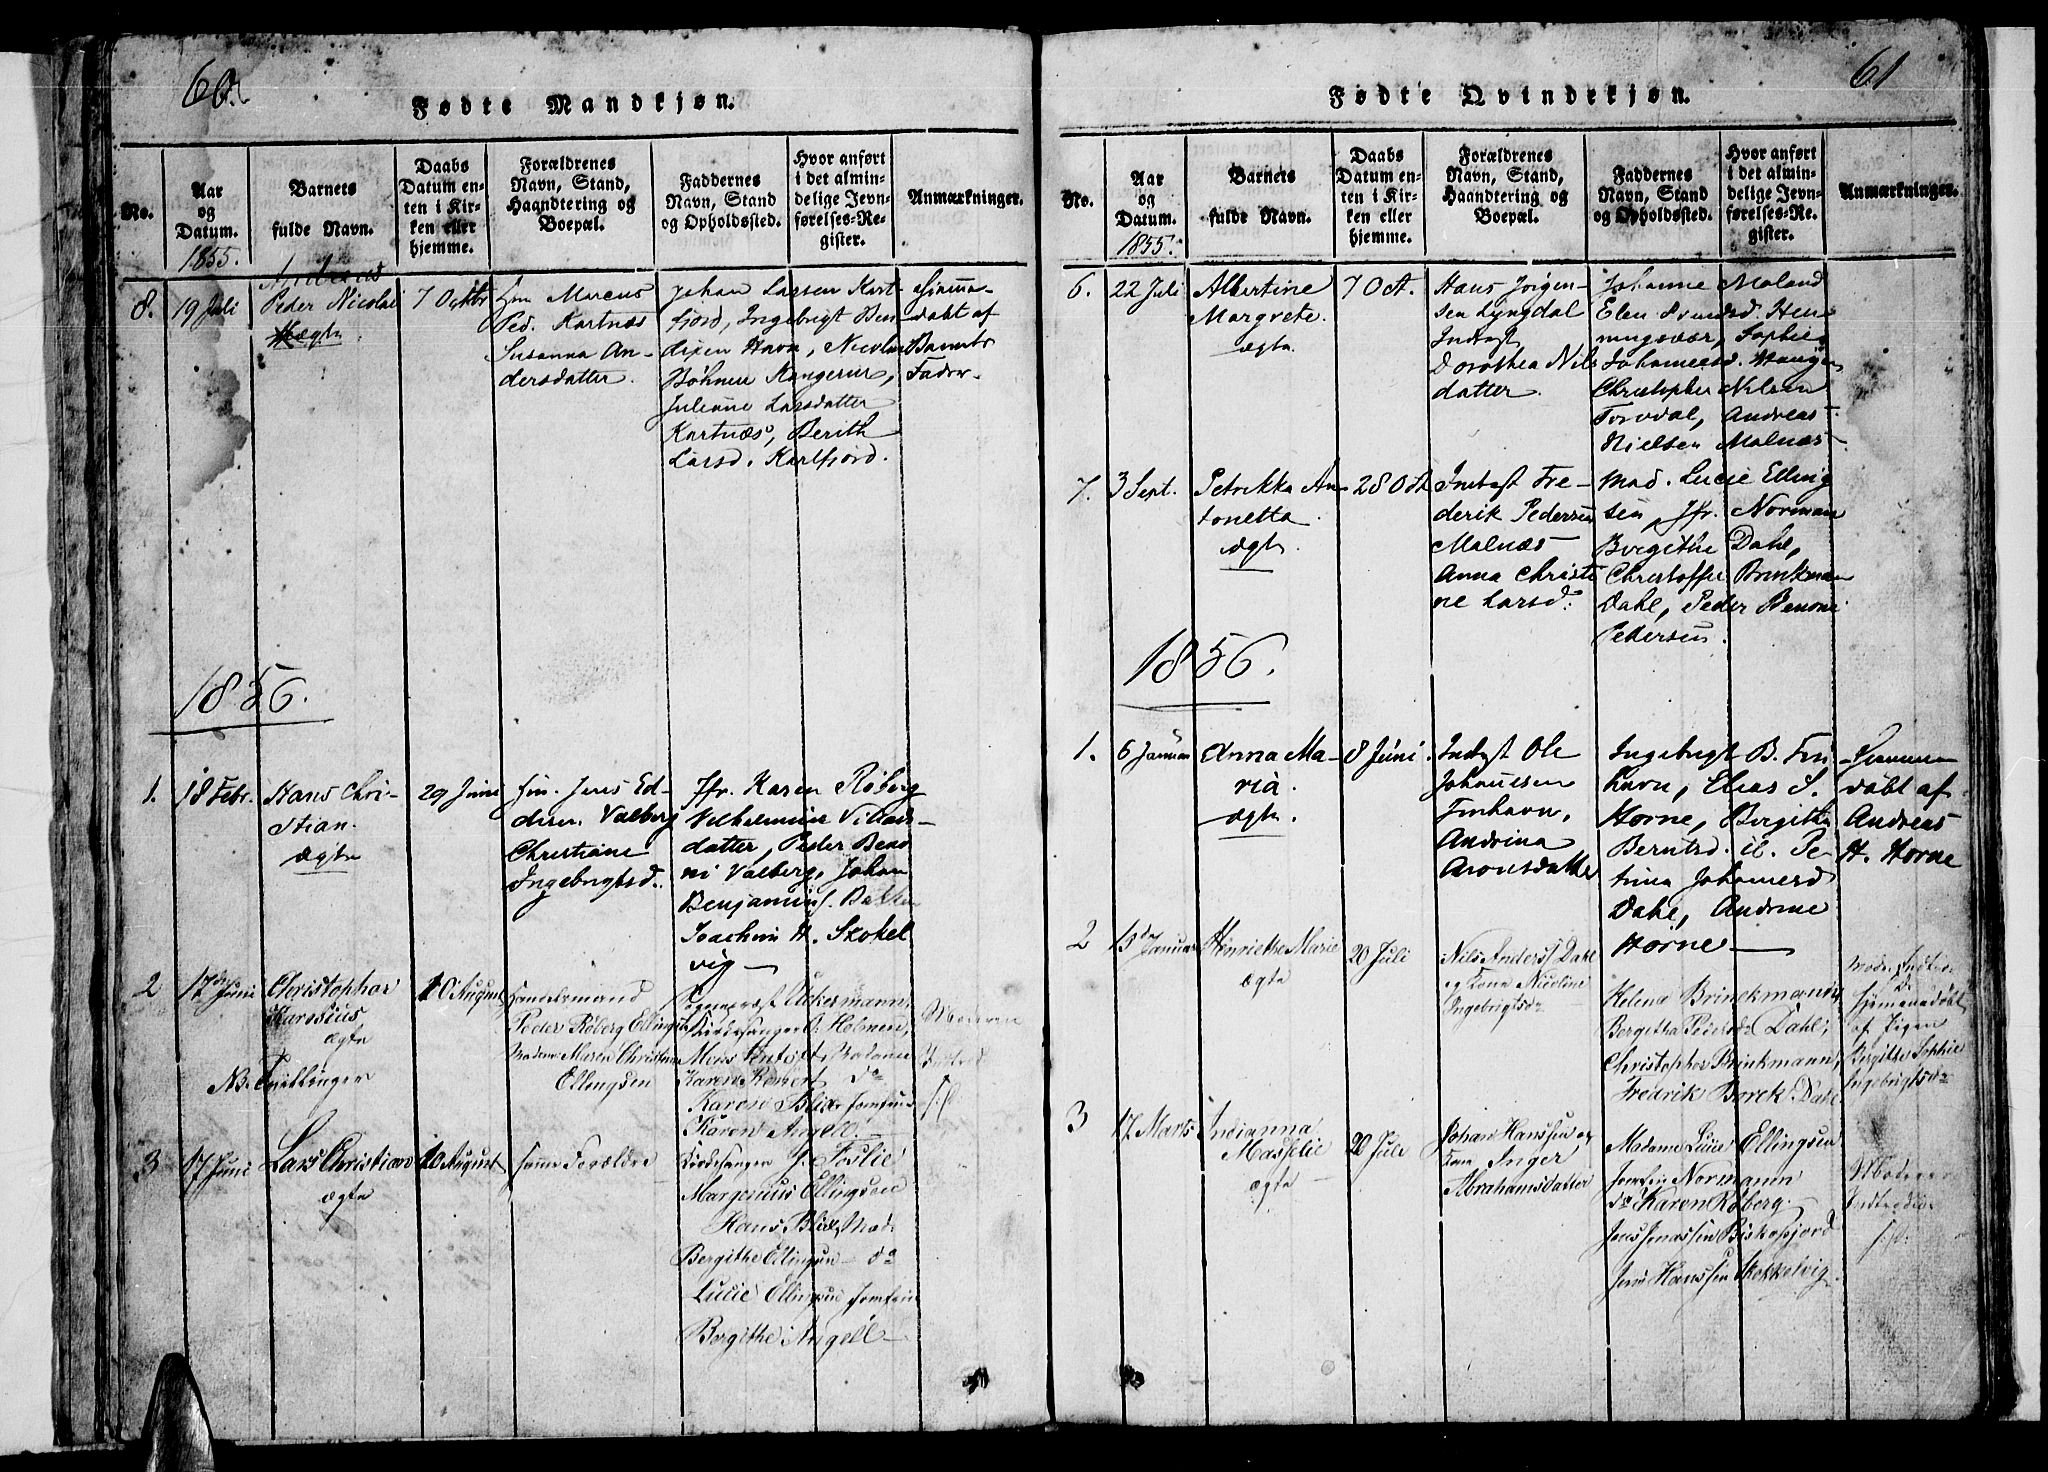 60.
Fødte Mandkjøn.
No.
Aar og Datum.
1855.
Barnets fulde Navn.
Daabs Datum enten i Kirken eller hjemme.
Forældrenes Navn, Stand, Haandtering og Boepæl.
Faddernes Navn, Stand og Opholdssted.
Hvor anført i det almindelige Jevnførelses-Register.
Anmærkninger.
8.
19 Juli
Andreas
Peder Nicolai
ægte
7 Octbr
Marcus
Ped. Kartnæs
Susanna An-
dersdatter.
Johan Larsen Kart-
fjord, Ingebrigt Ben-
dixen Havn, Nicolai
Bøhmer
Juliane Larsdatter
Kartnæs, Berith
Larsd. Kartfjord.
Hjemme-
døbt af
Barnets
Fader.
1856.
1.
18 Febr.
Hans Chri-
stian.
ægte
29 Juni
Jens Ed-
Valberg
Christiane
Ingebrigtsd.
Jfr. Karen Røberg
Vilhelmine
datter, Peder Beno
ni Valberg, Johan
Benjamins.
Joachim H. Skokel
vig
2
17de Juni
Christopher
ægte
NB. Tvillinger
10 August
Handelsmand
Peder Røberg Ellingsen
Madame Maren Christine
Ellingsen
Ackermann,
Kirkesanger O. Holmen,
Mons Madame
Karen do
Karen Blix Jomfrue
Karen Angell
Moderen
3
17 Juni
Lars Christian
ægte
10 August
samme Forældre
Kirkesanger J. Foslie
Margenius Ellingsen
Hans Blix, Mad.
Bergithe Ellingsen do
Lucie Ellingsen Jomfrue
Bergithe Angell
61
Fødte Qvindekjøn.
No.
Aar og Datum.
1855.
Barnets fulde Navn.
Daabs Datum enten i Kirken eller hjemme.
Forældrenes Navn, Stand, Haandtering og Boepæl.
Faddernes Navn, Stand og Opholdssted.
Hvor anført i det almindelige Jevnførelses-Register.
Anmærkninger.
6.
22 Juli
Albertine
Margrete
ægte
7 Oct.
Hans Jørgen-
sen Lyngdal
Indogt
Dorothea Nils
datter.
Johanne Moland
Elen Hen
ningsvær, Sophie
Johannesd.
Christopher Nilsen
Andreas
Nielsen Malnæs
7.
3 Sept.
Petrikka An-
tonetta.
ægte.
28 Oct
Fre-
derik Pedersen
Malnæs
Anna Christi
ne Larsd.
Mad. Lucie Elling
sen, Jfr. Norman
Birgithe Dahl,
Christoffer Brinkman
Dahl, Peder Benoni
Pedersen.
1856.
1.
6 Januar
Anna Ma-
ria.
ægte.
8 Juni
Ole
Johannesen
Finhavn,
Andrina
Aronsdatter
Ingebrigt B. Fin
havn, Elias S.
Horne, Bergithe
Berntsd. ib. Pe
trina Johannesd
Dahl, Andrine
Horne
Hjemme
døbt af
Andreas
H. Horne
2
13de Januar
Henriethe Marie
ægte
20 Juli
Nils Anders. Dahl
og Kone Nicoline
Ingebrigtsdr
Helena Brinckmann,
Bergitha Dahl,
Christopher Brinkmann,
Fredrik Borck Dahl
Hjemmedøbt
af Pigen
Birgithe Sophie
Ingebrigtsdr
3
17 Marts
Indianna
ægte
20 Juli
Johan Hanssen og
Kone Inger
Abrahamsdatter
Madame Lucie Ellingsen
Jomfru Normann
do Karen Røberg.
Jens Jonassen Biskopfjord
Jens Hanssen Skokkelvig.
Moderens